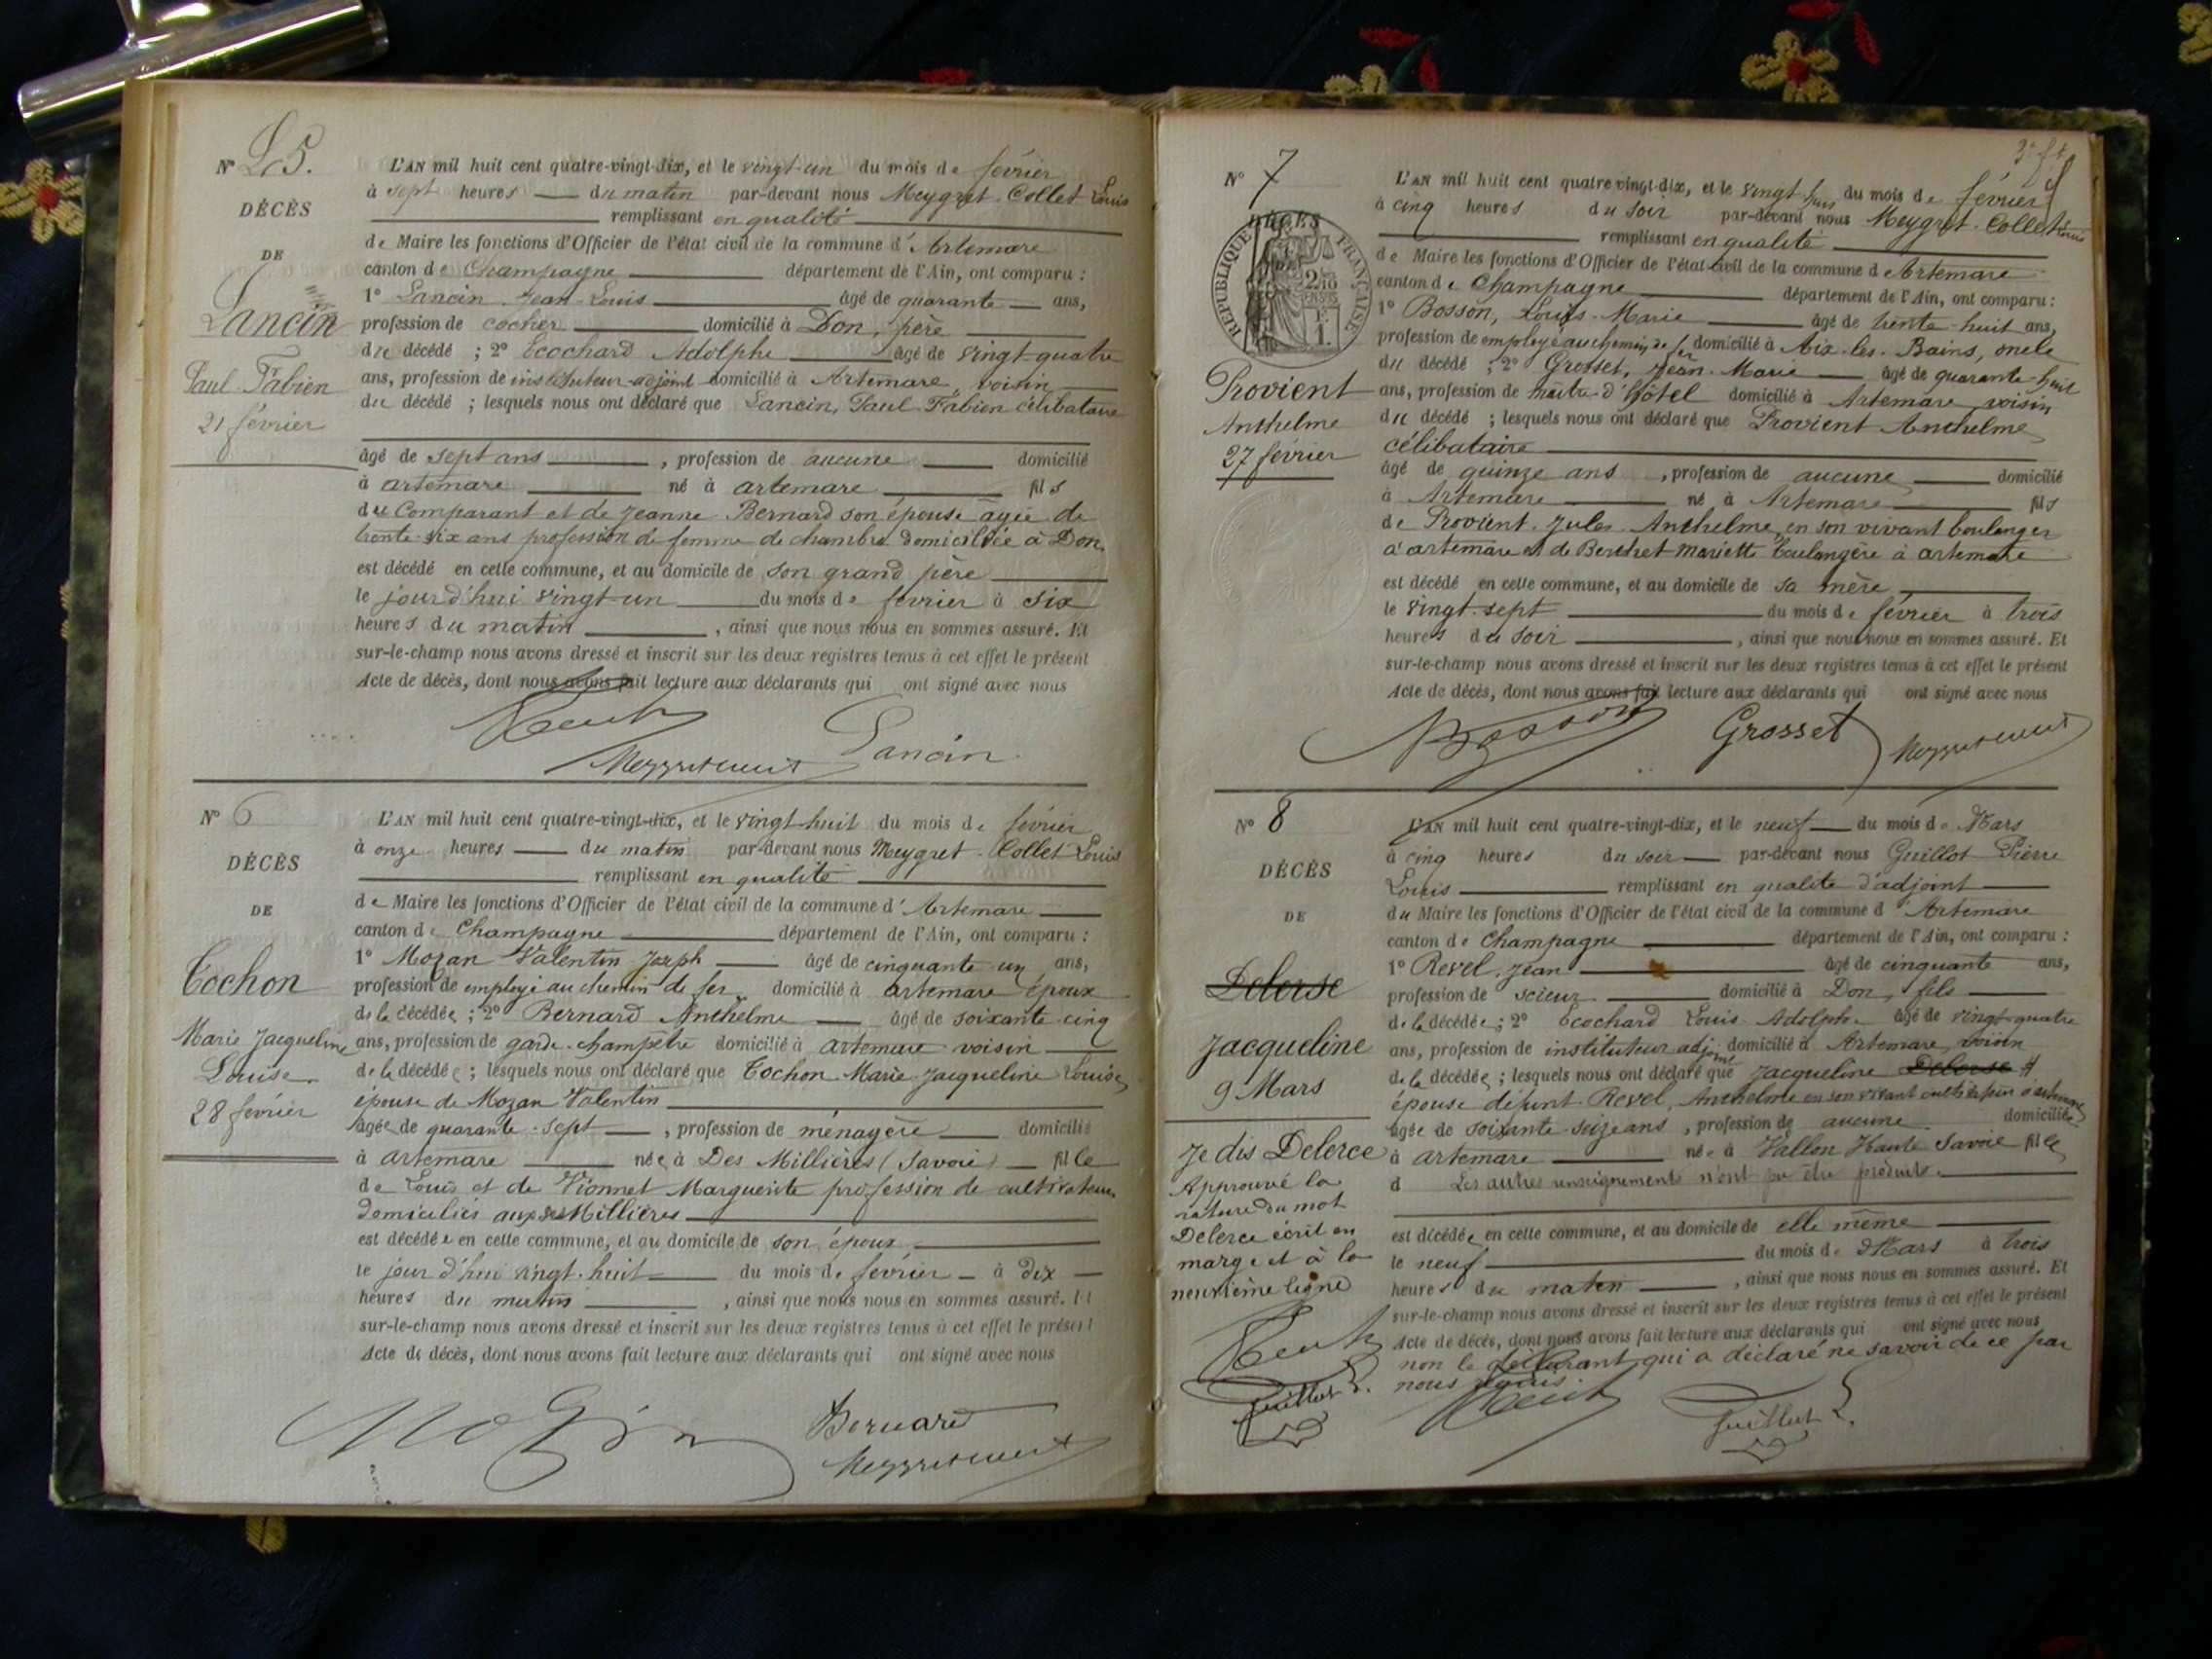 N° 5.
DÉCÈS
DE
Lancin
Paul Fabien
21 février
L'AN mil huit cent quatre-vingt-dix, et le vingt-un du mois de février
à sept heures du matin par-devant nous Meygret-Collet Louis
remplissant en qualité
de Maire les fonctions d'Officier de l'état civil de la commune d'Artemare
canton de Champagne département de l'Ain, ont comparu :
1° Lancin Jean-Louis âgé de quarante ans,
profession de cocher domicilié à Don, père
du décédé ; 2° Ecochard Adolphe âgé de vingt-quatre
ans, profession de instituteur-adjoint domicilié à Artemare, voisin
du décédé ; lesquels nous ont déclaré que Lancin, Paul Fabien célibataire
âgé de sept ans, profession de aucune domicilié
à artemare né à artemare fils
du Comparant et de Jeanne Bernard son épouse agée de
trente-six ans profession de femme de chambre domiciliée à Don.
est décédé en cette commune, et au domicile de son grand père
le jourd'hui vingt-un du mois de février à six
heures du matin, ainsi que nous nous en sommes assuré. Et
sur-le-champ nous avons dressé et inscrit sur les deux registres tenus à cet effet le présent
Acte de décès, dont nous avons fait lecture aux déclarants qui ont signé avec nous
Lancin
N° 6
DÉCÈS
DE
Cochon
Marie Jacqueline
Louise
28 février
L'AN mil huit cent quatre-vingt-dix, et le vingt-huit du mois de février
à onze heures du matin par-devant nous Meygret-Collet Louis
remplissant en qualité
de Maire les fonctions d'Officier de l'état civil de la commune d'Artemare
canton de Champagne département de l'Ain, ont comparu :
1° Mozan Valentin Joseph âgé de cinquante-un ans,
profession de employé au chemin de fer domicilié à artemare époux
de la décédée ; 2° Bernard Anthelme âgé de soixante-cinq
ans, profession de garde-champêtre domicilié à artemare voisin
de la décédée ; lesquels nous ont déclaré que Cochon Marie Jacqueline Louise
épouse de Mozan Valentin
âgée de quarante-sept, profession de ménagère domicilié
à artemare née à Des Millières (Savoie) fille
de Louis et de Vionnet Marguerite profession de cultivateurs
domiciliés aux Millières
est décédée en cette commune, et au domicile de son époux
le jourd'hui vingt-huit du mois de février à dix
heures du matin, ainsi que nous nous en sommes assuré. Et
sur-le-champ nous avons dressé et inscrit sur les deux registres tenus à cet effet le présent
Acte de décès, dont nous avons fait lecture aux déclarants qui ont signé avec nous
Bernard
N° 7
DÉCÈS
RÉPUBLIQUE FRANÇAISE
Provient
Anthelme
27 février
L'AN mil huit cent quatre-vingt-dix, et le vingt-huit du mois de février
à cinq heures du soir par-devant nous Meygret-Collet Louis
remplissant en qualité
de Maire les fonctions d'Officier de l'état civil de la commune d Artemare
canton de Champagne département de l'Ain, ont comparu :
1° Bosson, Louis-Marie âgé de trente-huit ans,
profession de employé au chemin de fer domicilié à Aix-les-Bains, oncle
du décédé ; 2° Grosset, Jean-Marie âgé de quarante-huit
ans, profession de maître d'hôtel domicilié à Artemare, voisin
du décédé ; lesquels nous ont déclaré que Provient Anthelme
célibataire
âgé de quinze ans, profession de aucune domicilié
à Artemare né à Artemare fils
de Provient Jules Anthelme, en son vivant boulanger
à artemare et de Berthet Mariette boulangère à artemare
est décédé en cette commune, et au domicile de sa mère
le vingt-sept du mois de février à trois
heures du soir, ainsi que nous nous en sommes assuré. Et
sur-le-champ nous avons dressé et inscrit sur les deux registres tenus à cet effet le présent
Acte de décès, dont nous avons fait lecture aux déclarants qui ont signé avec nous
Bosson Grosset
N° 8
DÉCÈS
DE
Delerse
Jacqueline
9 Mars
Je dis Delerce
Approuvé la
rature du mot
Delerce écrit en
marge et à la
neuvième ligne
Guillot L.
L'AN mil huit cent quatre-vingt-dix, et le neuf du mois de Mars
à cinq heures du soir par-devant nous Guillot Pierre
Louis remplissant en qualité d'adjoint
du Maire les fonctions d'Officier de l'état civil de la commune d'Artemare
canton de Champagne département de l'Ain, ont comparu :
1° Revel, Jean âgé de cinquante ans,
profession de scieur domicilié à Don, fils
de la décédée ; 2° Ecochard Louis Adolphe âgé de vingt-quatre
ans, profession de instituteur adjoint domicilié à Artemare, voisin
de la décédée ; lesquels nous ont déclaré que Jacqueline Delerse
épouse défunt Revel, Anthelme en son vivant cultivateur à artemare
âgée de soixante-seize ans, profession de aucune domiciliée
à artemare née à Vallon Haute Savoie fille
d Les autres renseignements n'ont pu être produits.
est décédée en cette commune, et au domicile de elle même
le neuf du mois de Mars à trois
heures du matin, ainsi que nous nous en sommes assuré. Et
sur-le-champ nous avons dressé et inscrit sur les deux registres tenus à cet effet le présent
Acte de décès, dont nous avons fait lecture aux déclarants qui ont signé avec nous
non le déclarant qui a déclaré ne savoir de ce par
nous requis.
Guillot L.